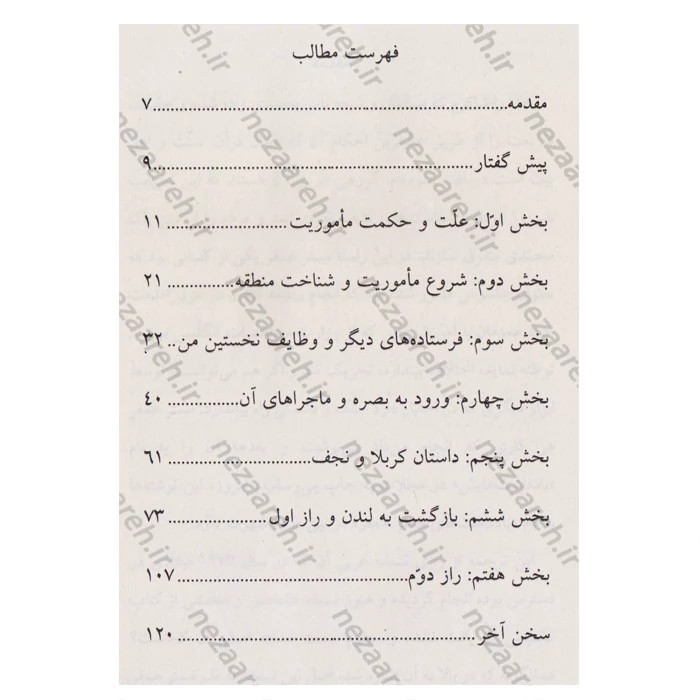 فهرست مطالب
مقدمه..........................................................................۷
پیش گفتار......................................................................۹
بخش اوّل: علّت و حکمت مأموریت ........................ ۱۱
بخش دوم: شروع مأموریت و شناخت منطقه.............. ۲۱
بخش سوم: فرستاده‌های دیگر و وظایف نخستین من.. ۳۲
بخش چهارم: ورود به بصره و ماجراهای آن............... ٤٠
بخش پنجم: داستان کربلا و نجف ............................ ۶۱
بخش ششم: بازگشت به لندن و راز اول .................... ۷۳
بخش هفتم: راز دوّم............................................ ۱۰۷
سخن آخر........................................................ ۱۲۰
nezaareh.ir